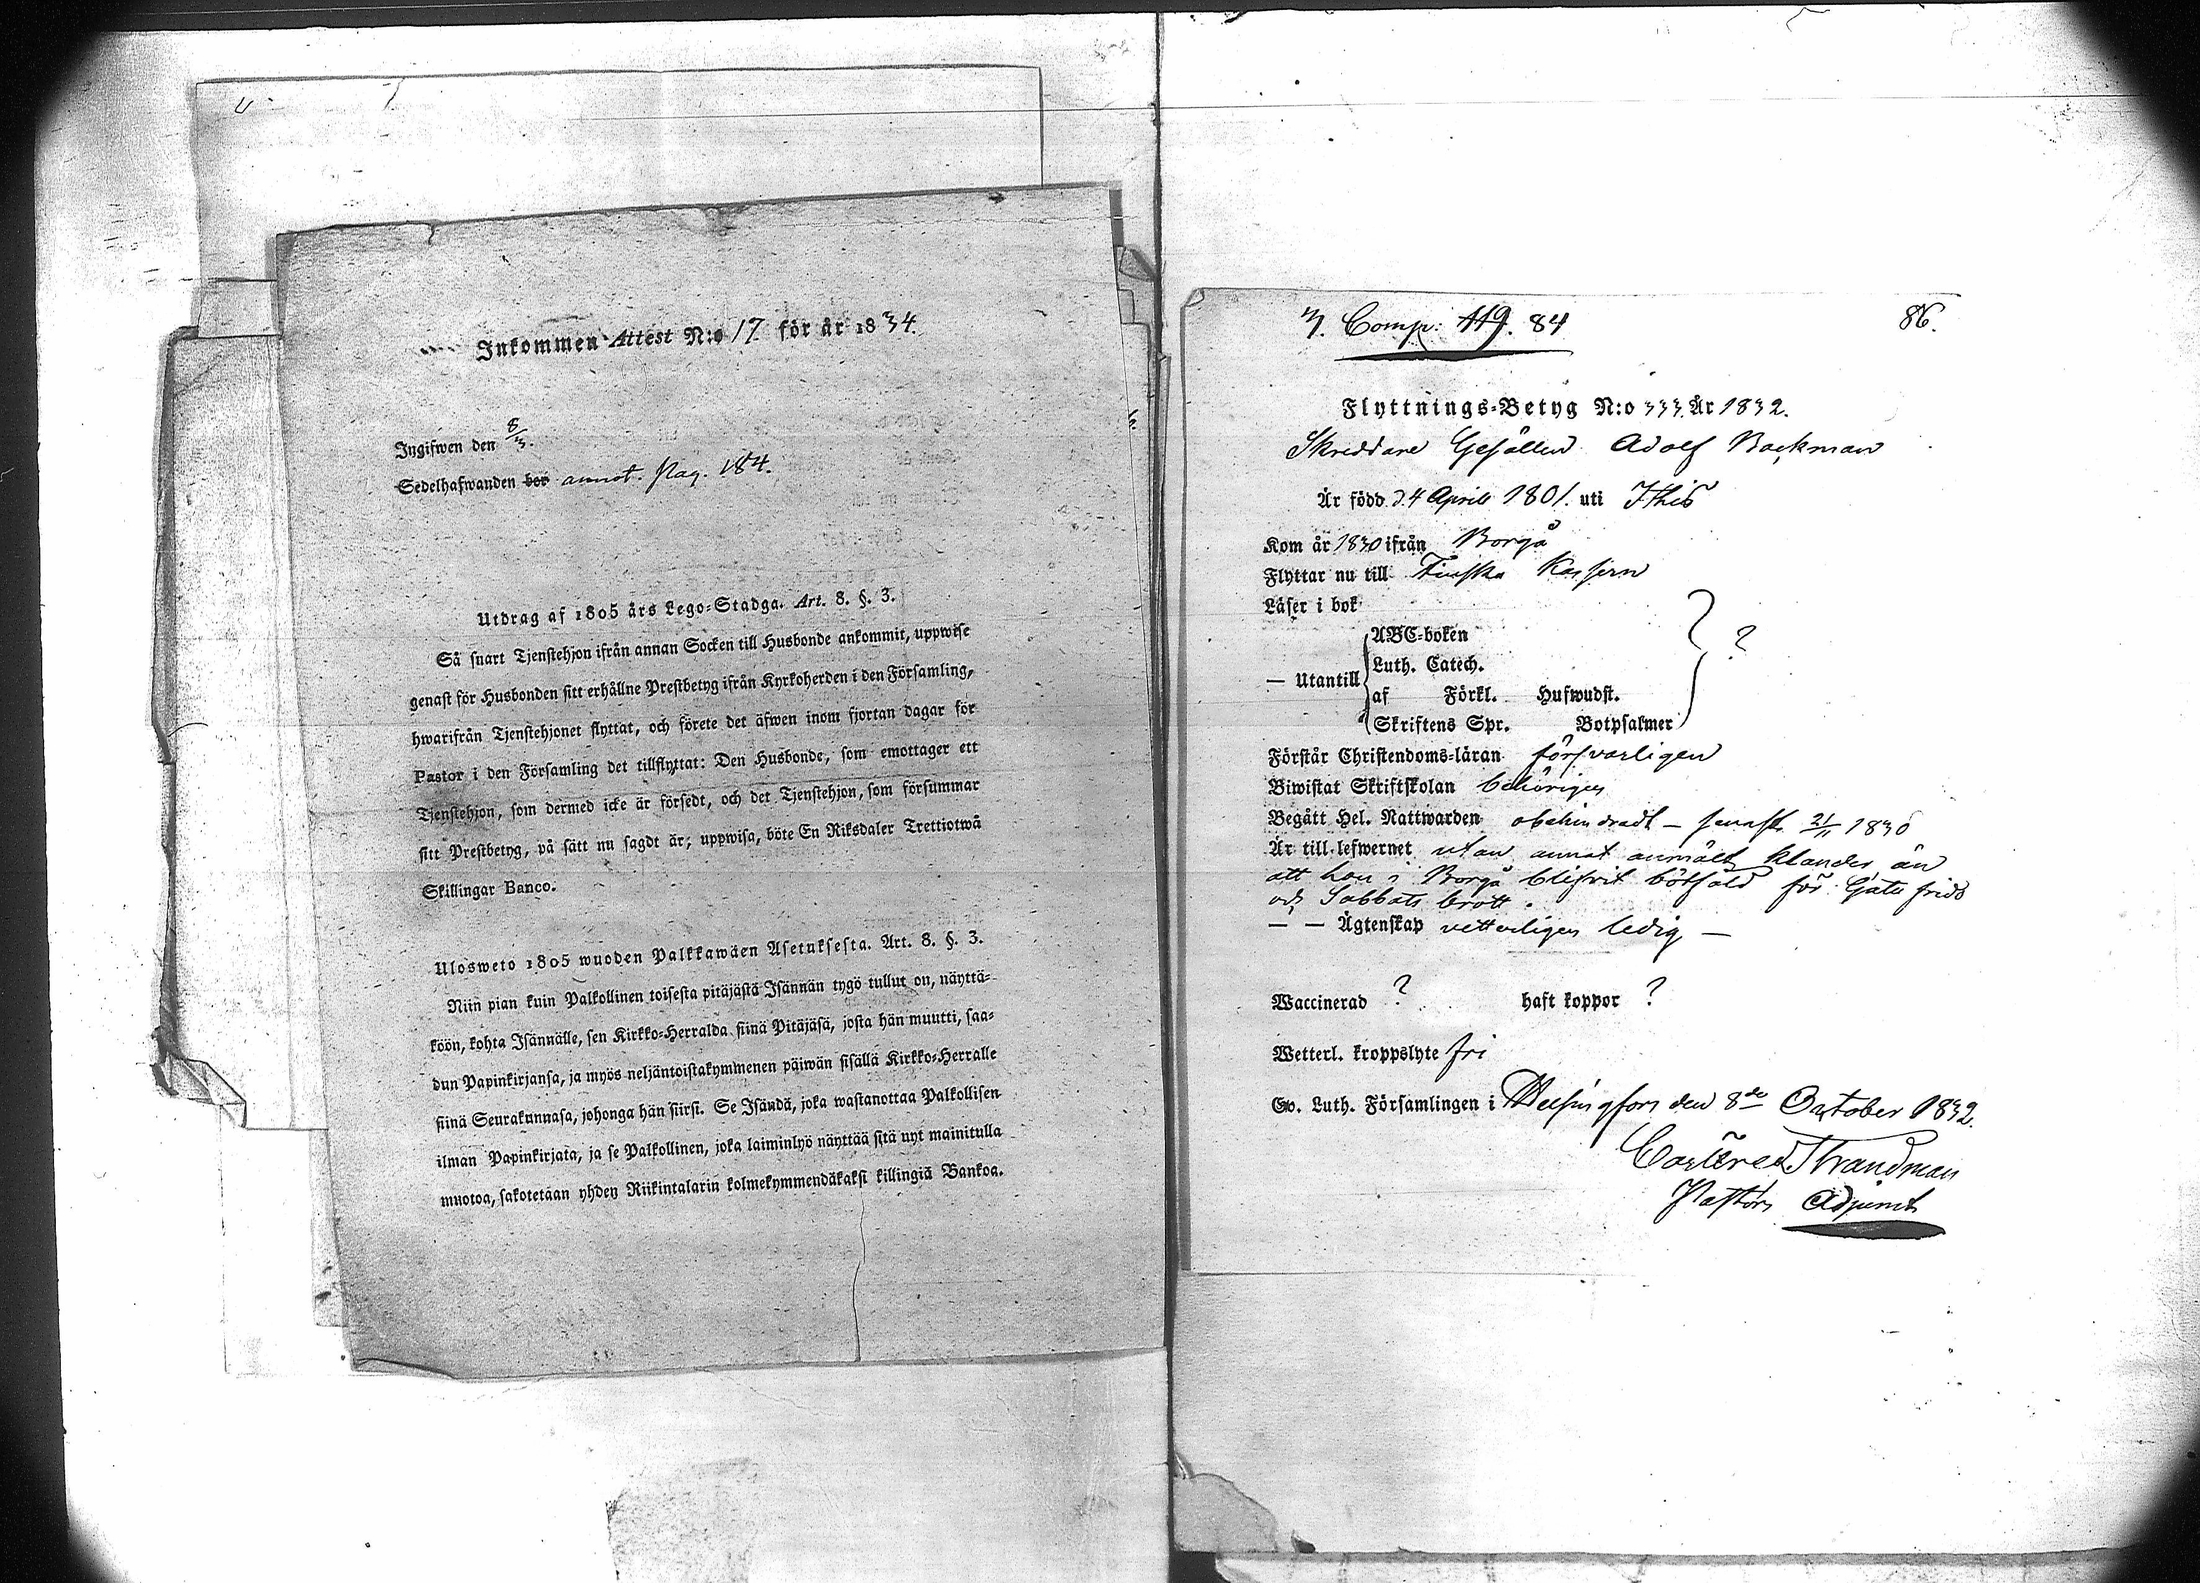 Inkommen Attest N:o 17 för år 1834.
Ingifwen den 8/3.
Sedelhafwanden bor annot. Pag. 184.
Utdrag af 1805 års Lego-Stadga. Art. 8. §. 3.
Så snart Tjenstehjon ifrån annan Socken till Husbonde ankommit, uppwise
genast för Husbonden sitt erhållne Prestbetyg ifrån Kyrkoherden i den Församling,
hwarifrån Tjenstehjonet flyttat, och förete det äfwen inom fjortan dagar för
Pastor i den Församling det tillflyttat: Den Husbonde, som emottager ett
Tjenstehjon, som dermed icke är försedt, och det Tjenstehjon, som försummar
sitt Prestbetyg, på sätt nu sagdt är, uppwisa, böte En Riksdaler Trettiotwå
Skillingar Banco.
Ulosweto 1805 wuoden Palkkawäen Asetuksesta. Art. 8. §. 3.
Niin pian kuin Palkollinen toisesta pitäjästä Isännän tygö tullut on, näyttä-
köön, kohta Isännälle, sen Kirkko-Herralda siinä Pitäjäsä, josta hän muutti, saa-
dun Papinkirjansa, ja myös neljäntoistakymmenen päiwän sisällä Kirkko-Herralle
siinä Seurakunnasa, johonga hän siirsi. Se Isändä, joka wastanottaa Palkollisen
ilman Papinkirjata, ja se Palkollinen, joka laiminlyö näyttää sitä nyt mainitulla
muotoa, sakotetaan yhden Riikintalarin kolmekymmendäkaksi killingiä Bankoa.
Comp: 119. 84
86.
Flyttnings-Betyg N:o 333 År 1832.
Skreddare Gesällen Adolf Backman
Är född d. 4 April 1801. uti Ithis
Kom år 1830 ifrån Borgå
Flyttar nu till Finska Kasern
Läser i bok
— Utantill
ABC-boken
Luth. Catech.
af Förkl. Hufwudst.
Skriftens Spr. Botpsalmer
?
Förstår Christendoms-läran försvarligen
Biwistat Skriftskolan behörigen
Begått Hel. Nattwarden obehindradt – senast 21/11 1830
Är till lefwernet utan annat anmält klander än
att han i Borgå blifvit bötfäld för Gatu frids
och Sabbats brott.
— — Ägtenskap vetterligen ledig —
Waccinerad ? haft koppor ?
Wetterl. kroppslyte fri
Ev. Luth. Församlingen i Helsingfors den 8de October 1832.
Strandman
Pastors Adjunct